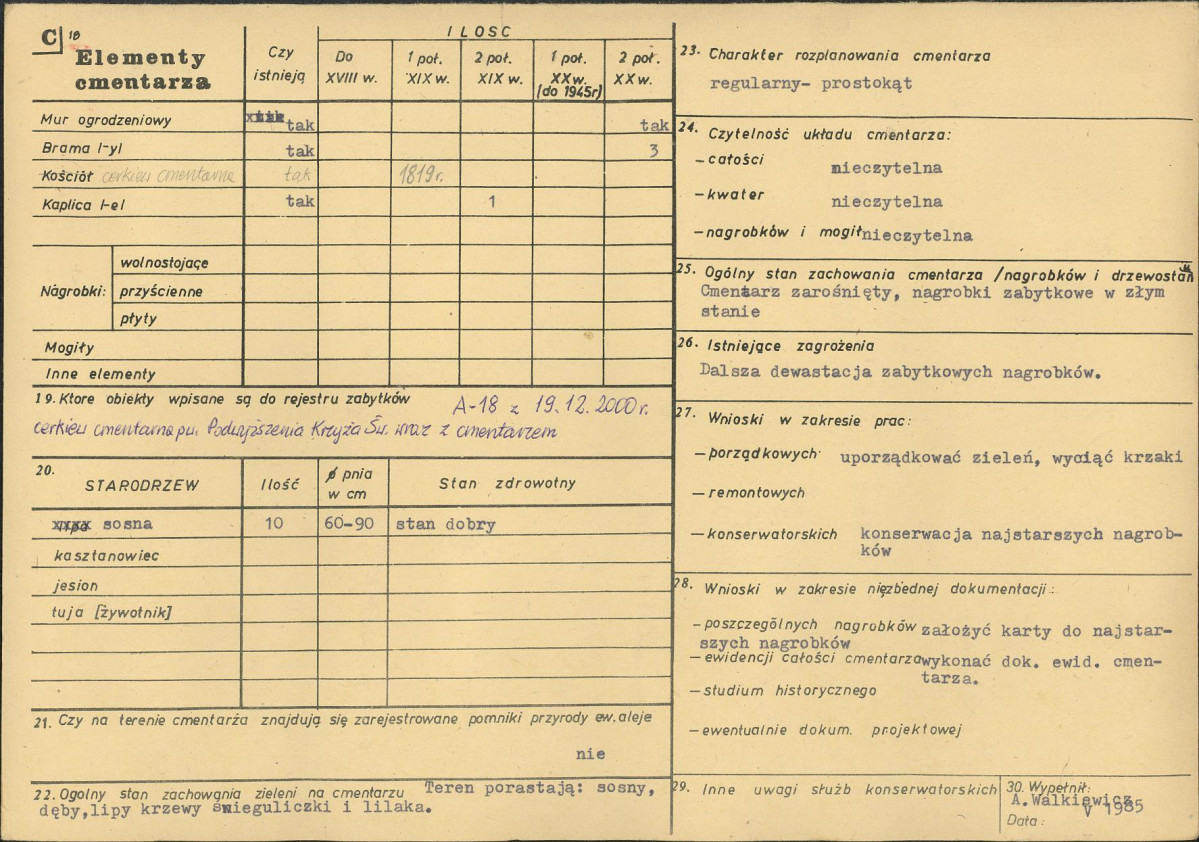 C 18
Elementy
cmentarza
Czy
istnieją
ILOSC
Do
XVIII w.
1 poł.
XIX w.
2 poł.
XIX w.
1 poł.
XX w.
(do 1945r)
2 poł.
XX w.
Mur ogrodzeniowy tak tak
Brama l-yl tak 3
Kościół cerkiew cmentarna tak 1819 r.
Kaplica l-el tak 1
Nagrobki:
wolnostojące
przyścienne
płyty
Mogiły
Inne elementy
19. Ktore obiekty wpisane są do rejestru zabytków A-18 z 19.12.2000 r.
cerkiew cmentarna pw. Podwyższenia Krzyża Św. wraz z cmentarzem
20.
STARODRZEW
Ilość
ø pnia
w cm
Stan zdrowotny
xxxx sosna 10 60-90 stan dobry
kasztanowiec
jesion
tuja [żywotnik]
21. Czy na terenie cmentarza znajdują się zarejestrowane pomniki przyrody ew. aleje
nie
22. Ogolny stan zachowania zieleni na cmentarzu Teren porastają: sosny,
dęby,lipy krzewy śnieguliczki i lilaka.
23. Charakter rozplanowania cmentarza
regularny- prostokąt
24. Czytelność układu cmentarza:
- całości nieczytelna
- kwater nieczytelna
- nagrobków i mogił nieczytelna
25. Ogólny stan zachowania cmentarza /nagrobków i drzewostan
Cmentarz zarośnięty, nagrobki zabytkowe w złym
stanie
26. Istniejące zagrożenia
Dalsza dewastacja zabytkowych nagrobków.
27. Wnioski w zakresie prac:
- porządkowych uporządkować zieleń, wyciąć krzaki
- remontowych
- konserwatorskich konserwacja najstarszych nagrob-
ków
28. Wnioski w zakresie niezbednej dokumentacji:
- poszczególnych nagrobków założyć karty do najstar-
szych nagrobków
- ewidencji całości cmentarza wykonać dok. ewid. cmen-
tarza.
- studium historycznego
- ewentualnie dokum. projektowej
29. Inne uwagi służb konserwatorskich
30. Wypełnił:
A.Walkiewicz
V 1985
Data: